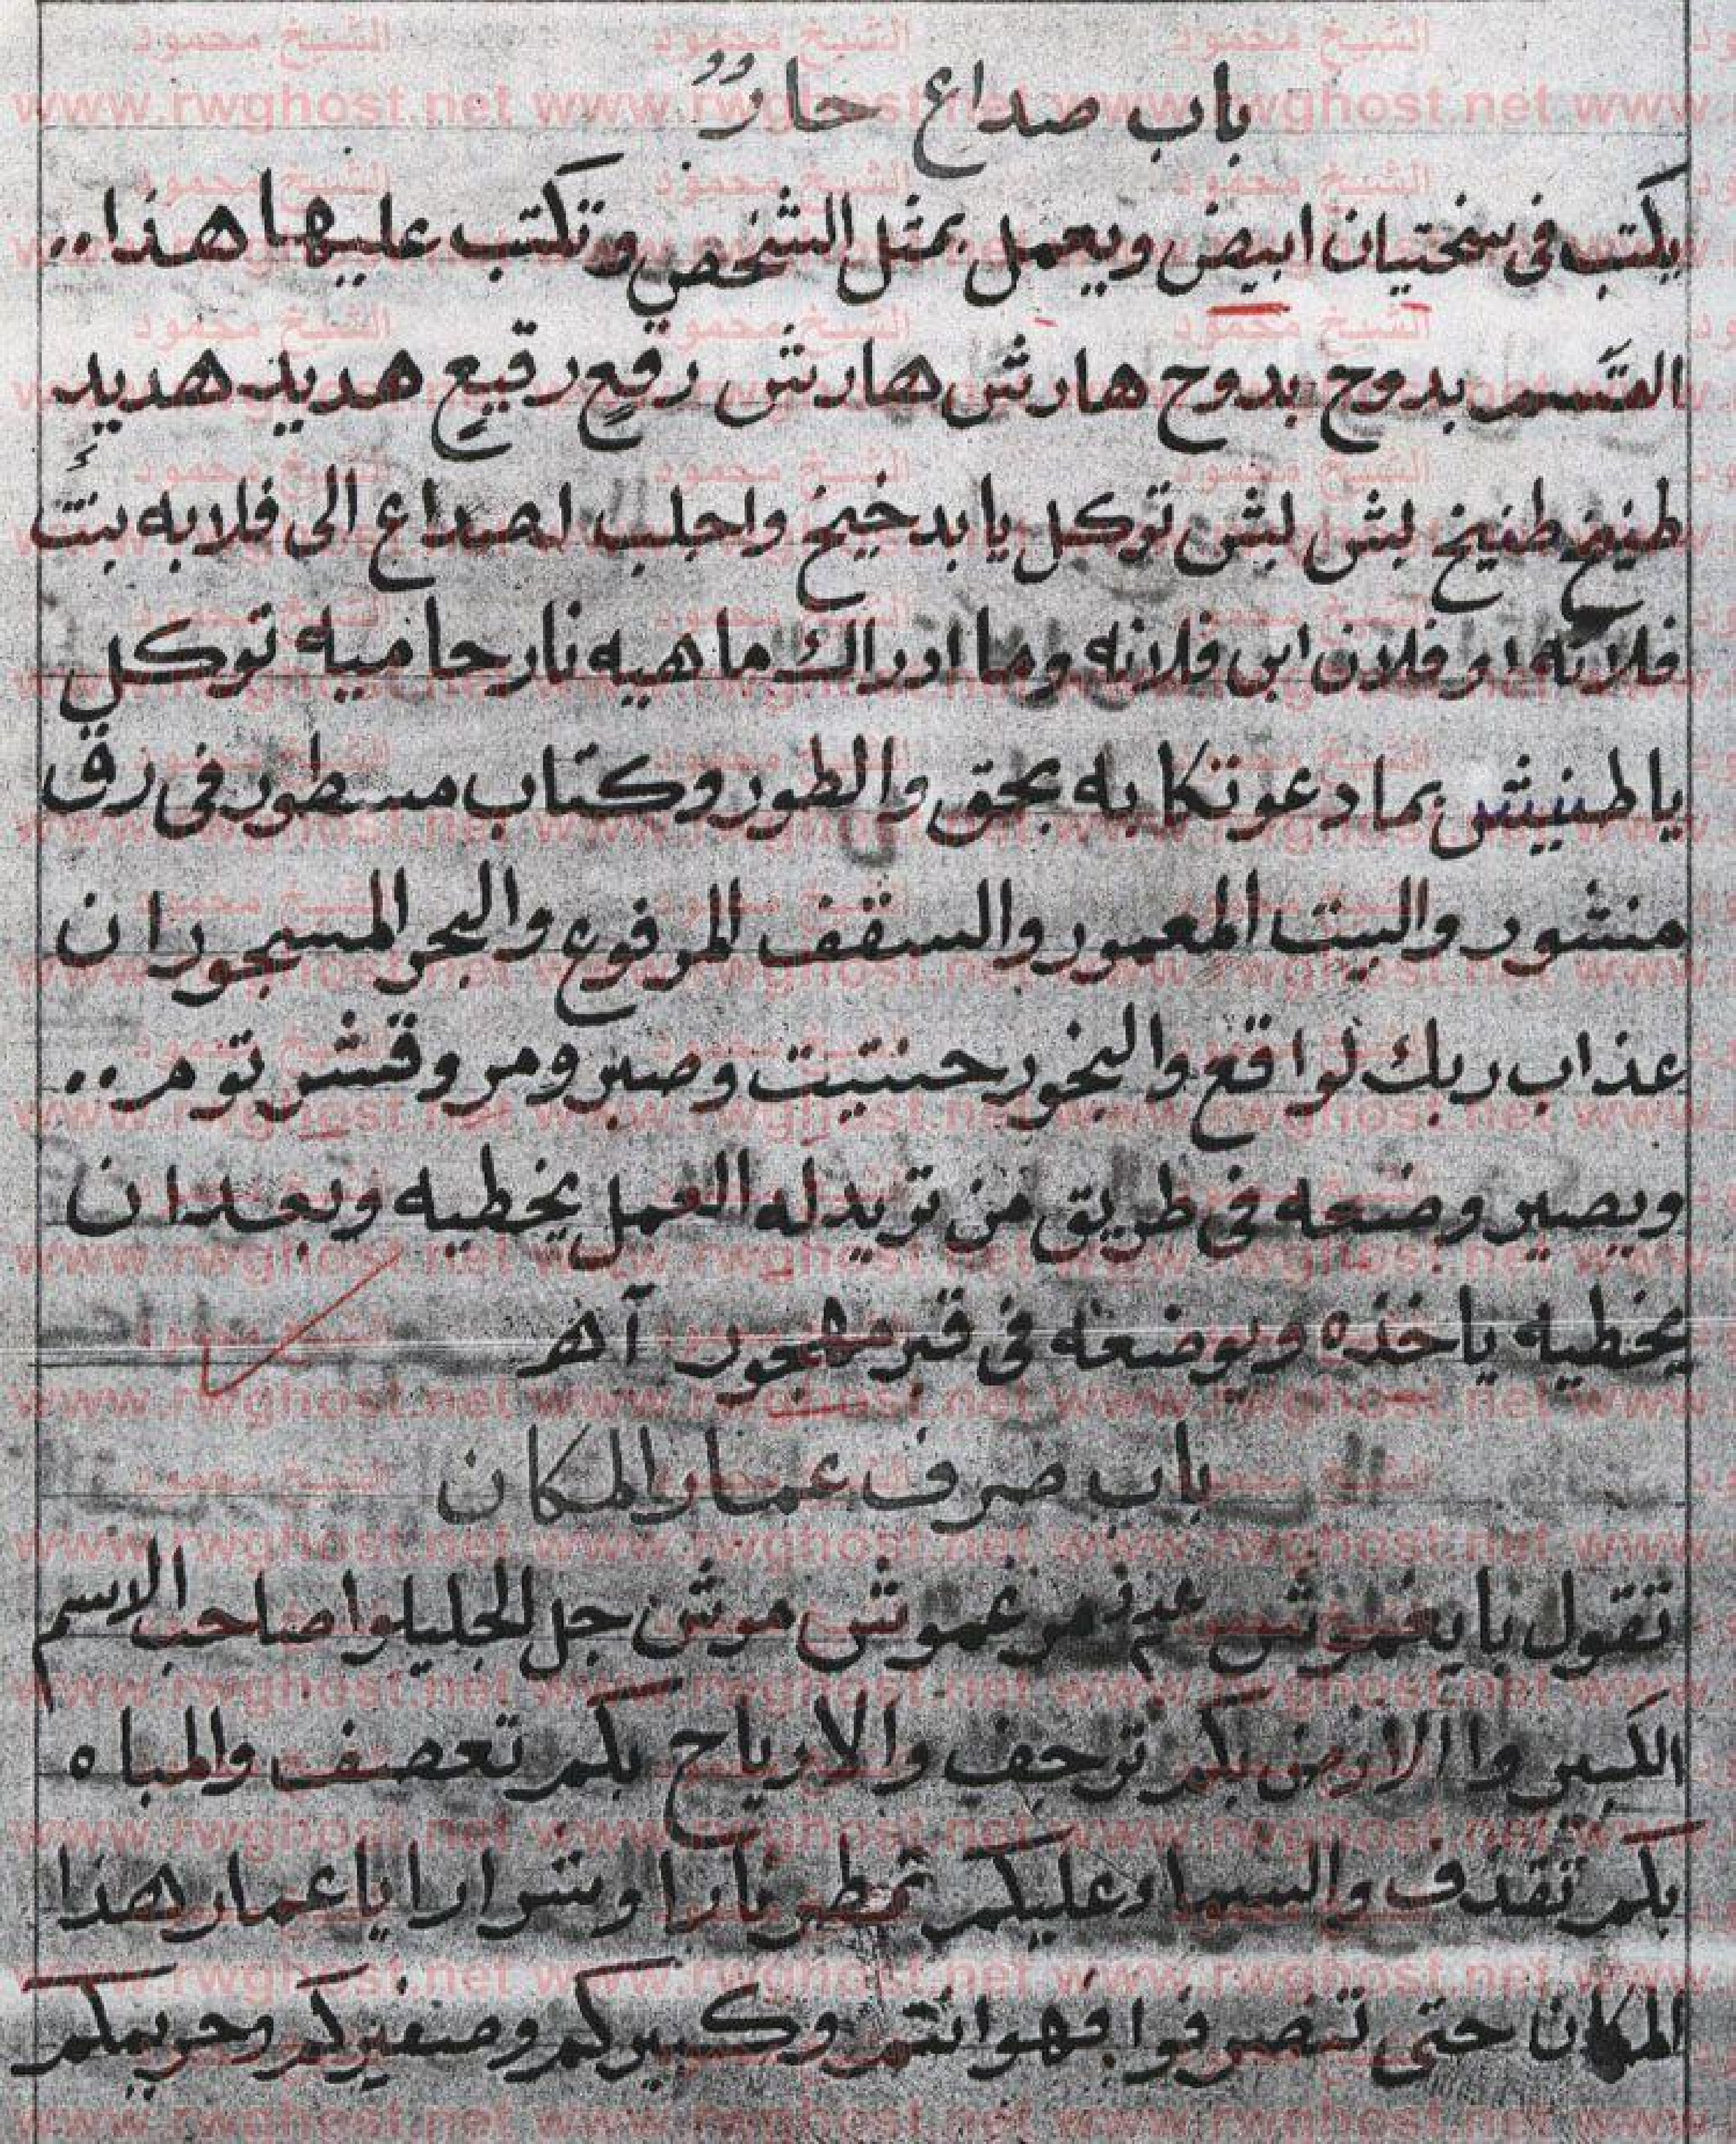 باب صداع حارُ
يكتب فى سختيان ابيض ويعمل بمثل الشخص وتكتب عليها هذا..
القسم بدوح بدوح هارش هارش رقيع رقيع هديد هديد
طنيخ طنيخ لبش لبش توكل يا بدخيخ واجلب اصداع الى فلانه بنت
فلانه او فلان ابن فلانه وما ادراك ما هيه نار حاميه توكل
يا طنيش بما دعوتكا به بحق والطور وكتاب مسطور فى رق
منشور والبيت المعمور والسقف المرفوع والبحر المسجور ان
عذاب ربك لواقع والبخور حنتيت وصبر ومر وقشر توم..
ويصير وضعه فى طريق من تريد له العمل يخطيه وبعد ان
يخطيه ياخذه ويوضعه فى قبر مهجور آهـ
باب صرف عمار المكان
تقول يا يغموش غموش موش جل الجليلوا صاحب الاسم
الكبير وا الارض بكم ترجف والارياح بكم تعصف والمياه
بكم تقذف والسماء عليكم تمطر نارا وشرارا يا عمار هذا
المكان حتى تنصرفوا فهوا انتم وكبيركم وصغيركم وحريمكم
www.rwghost.net
الشيخ محمود